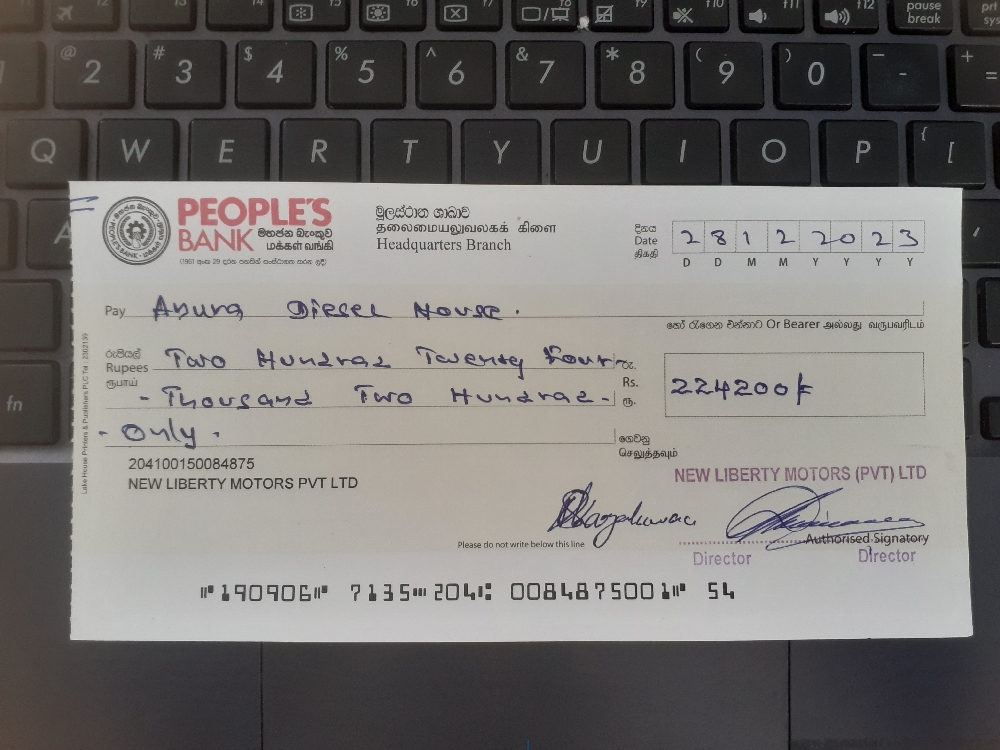 f5 f6 f7 f8 f9 f10 f11 f12 pause break prt sys
@ 2 # 3 $ 4 % 5 ^ 6 & 7 * 8 ( 9 ) 0 _ - + =
Q W E R T Y U I O P { [
A
fn
PEOPLE'S BANK
මහජන බැංකුව
மக்கள் வங்கி
(1961 අංක 29 දරන පනතින් සංස්ථාපනය කරන ලදී)
මූලස්ථාන ශාඛාව
தலைமையலுவலகக் கிளை
Headquarters Branch
දිනය
Date
திகதி
2 8 1 2 2 0 2 3
D D M M Y Y Y Y
Pay Anura Diesel House.
හෝ රැගෙන එන්නාට Or Bearer அல்லது வருபவரிடம்
රුපියල්
Rupees
ரூபாய்
Two Hundrad Twenty Four
- Thousand Two Hundrad -
- Only -
රු.
Rs.
ரூ.
224200/=
ගෙවනු
செலுத்தவும்
204100150084875
NEW LIBERTY MOTORS PVT LTD
NEW LIBERTY MOTORS (PVT) LTD
Authorised Signatory
Director Director
Please do not write below this line
⑈190906⑈ 7135⑉204⑆ 0084875001⑈ 54